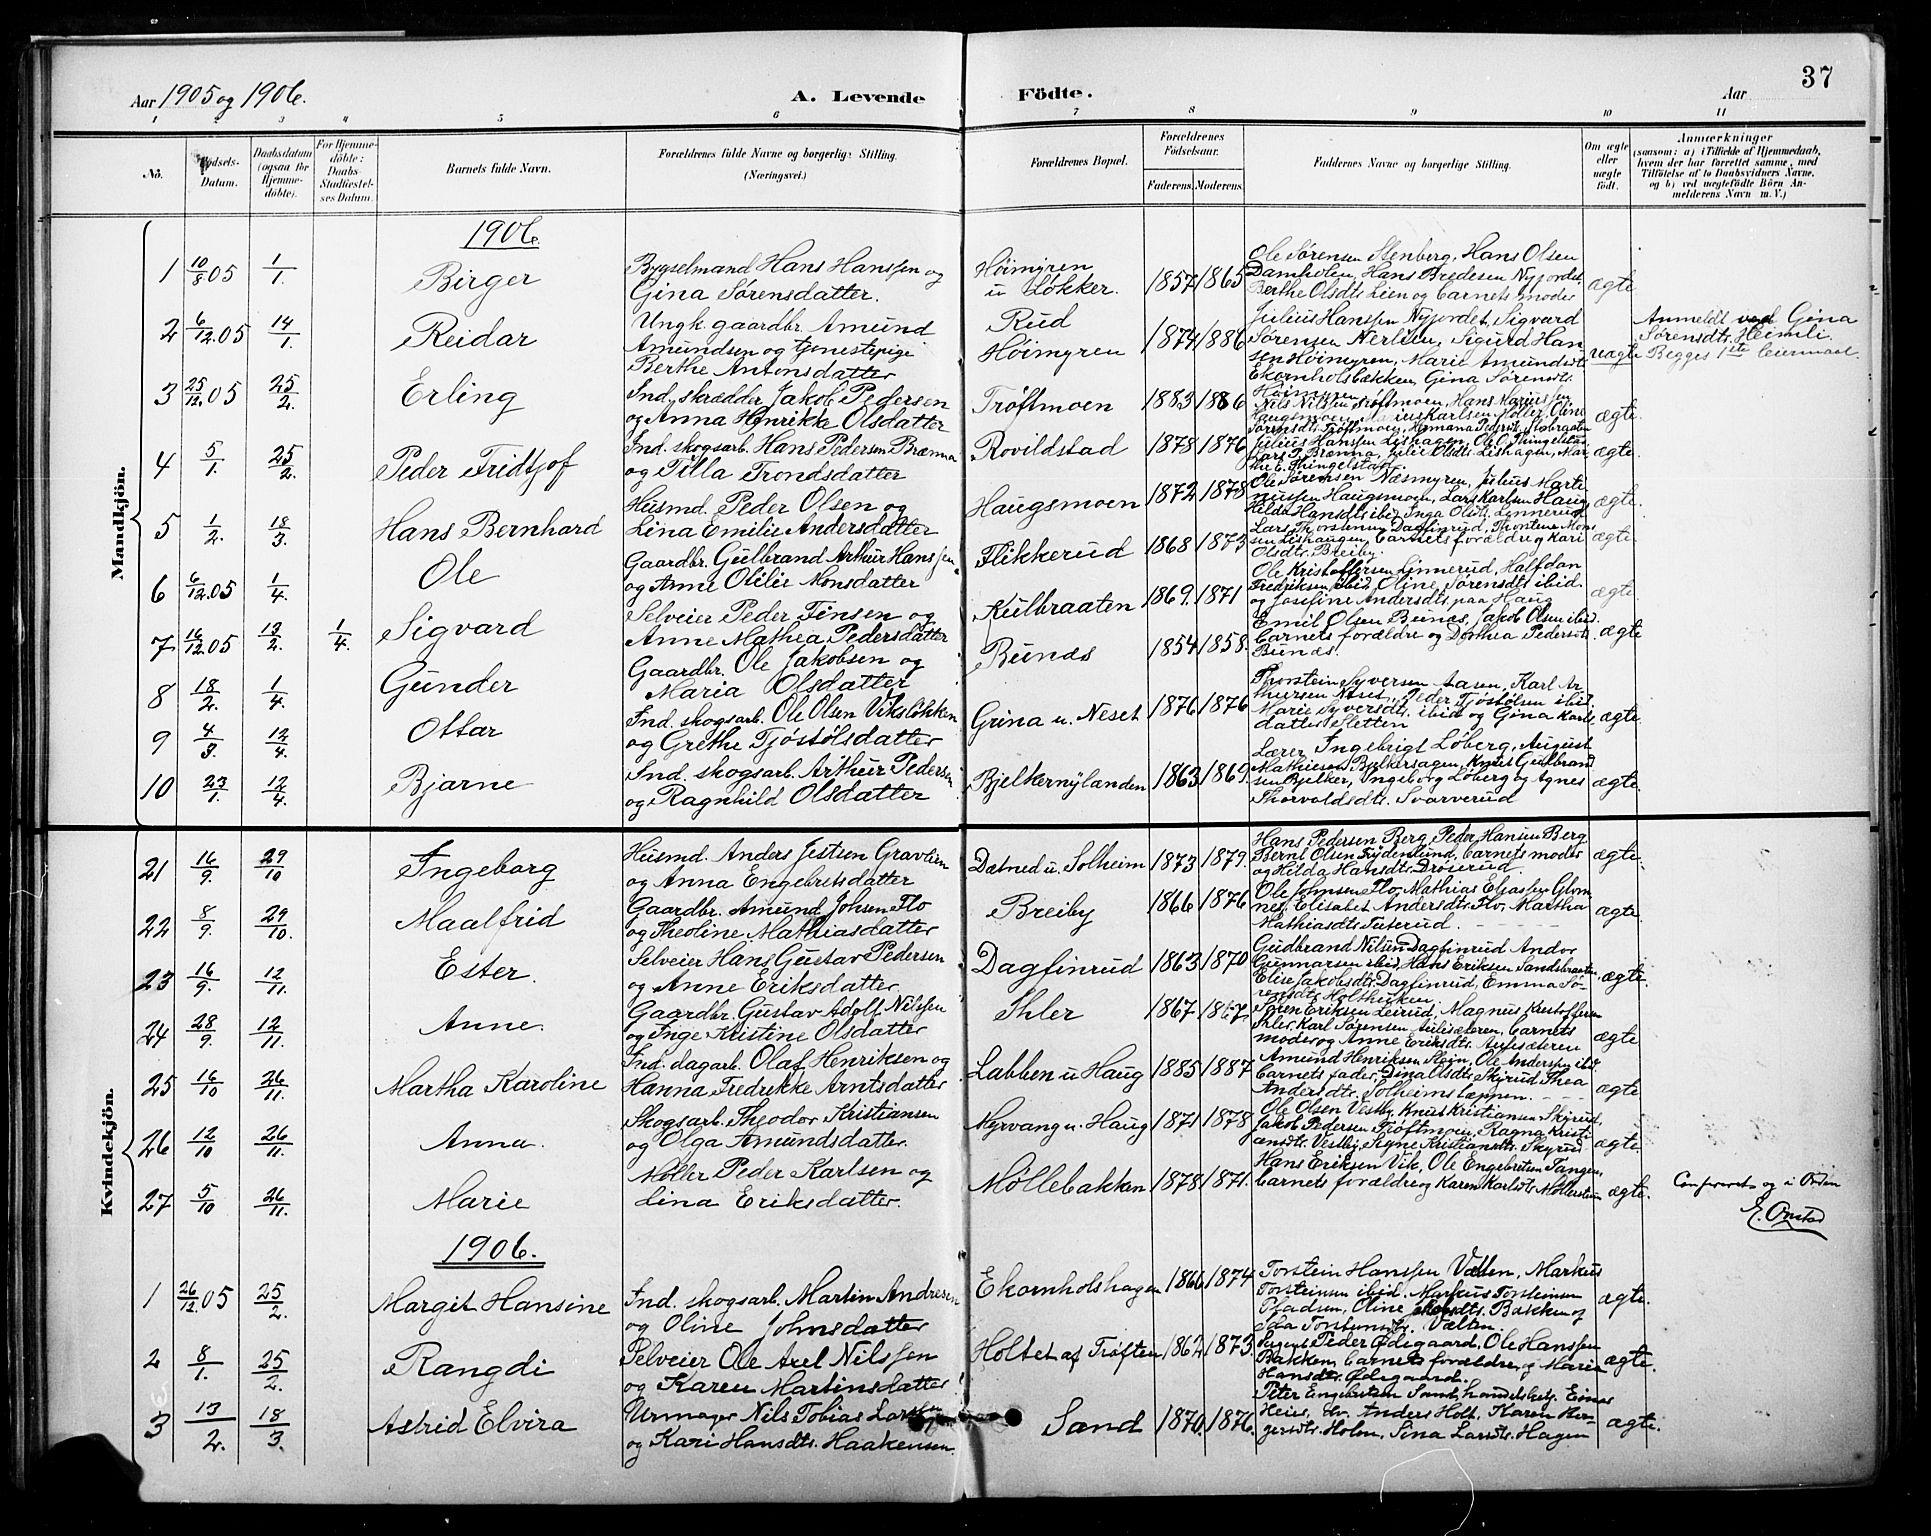 37
Aar 1905 og 1906. A. Levende Födte. Aar
1 2 3 4 5 6 7 8 9 10 11
No. Födsels-Datum. Daabsdatum (ogsaa for Hjemme-döbte). For Hjemme-döbte: Daabs-Stadfæstel-ses Datum. Barnets fulde Navn. Forældrenes fulde Navne og borgerlige Stilling. (Næringsvei.) Forældrenes Bopæl. Forældrenes Födselsaar. Faderens. Moderens. Faddernes Navne og borgerlige Stilling. Om ægte eller uægte födt. Anmærkninger (saasom: a) i Tilfælde af Hjemmedaab, hvem der har forrettet samme, med Tilföielse af to Daabsvidners Navne, og b) ved uægtefödte Börn An-melderens Navn m. V.)
Mandkjön.
1906.
1 10/8 05 1/1. Birger Bygselmand Hans Hanssen og Gina Sørensdatter. Høimyren u Løkker. 1857 1865 Ole Sørensen Stenberg, Hans Olsen Damholen, Hans Bredesen Nyjordet, Berthe Olsdtr Lien og barnets moder ægte
2 6/12.05 14/1. Reidar Ungk. gaardbr. Amund Amundsen og tjenestepige Berthe Antonsdatter Rud Høimyren 1874 1886 Julius Hanssen Nyjordet, Sigvard Sørensen Nerlien, Sigurd Hanssen Høimyren, Marie Amundsdtr Ekornholsbækken, Gina Sørensdtr. Høimyren uægte Anmeldt ved Gina Sørensdtr. Heimli. Begges 1ste leiermaal.
3 25/12.05 25/2. Erling Ind. skrædder Jakob Pedersen og Anna Henrikke Olsdatter Trøftmoen 1883 1886 Nils Nilsen Trøftmoen, Hans Mariussen Haugsmoen, Karlsen Møller, Oline Sørensdtr. Trøftmoen, ægte.
4 5/1. 25/2. Peder Fridtjof Ind. skogsarb. Hans Pedersen Brænna og Tilla Trondsdatter Rovildstad 1878 1876 Julius Hanssen Lishagen, Ole O. Thingelstad, Lars P. Brænna, Julie Olsdtr. Lishagen, Marthe E. Thingelstad. ægte.
5 1/2. 18/3. Hans Bernhard Husmd. Peder Olsen og Lina Emilie Andersdatter Haugsmoen 1872 1878 Ole Sørensen Næsmyren, Julius Martinussen Haugsmoen, Lars Karlsen Haug, Hilda Hansdtr ibid, Inga Olsdtr. Linnerud ægte.
6 6/12.05 1/4. Ole Gaardbr. Gulbrand Arthur Hanssen og Anne Olilie Monsdatter Flikkerud 1868 1873 Lars Thorstensen Dagfinrud, Thorstein Monsen Lishaugen, barnets forældre og Kari Olsdtr. Breiby. ægte.
7 16/12.05 13/2. 1/4. Sigvard Selveier Peder Finsen og Anne Mathea Pedersdatter Kulbraaten 1869. 1871 Ole Kristoffersen Linnerud, Halfdan Fredriksen ibid, Oline Sørensdtr ibid. og Josefine Andersdtr. paa Haug ægte.
8 18/2. 1/4. Gunder Gaardbr. Ole Jakobsen og Maria Olsdatter Bunæs 1854 1858. Emil Olsen Bunæs, Jakob Olsen ibid. barnets forældre og Dorthea Pedersdtr. Bunæs. ægte
9 4/3. 12/4. Ottar Ind. skogsarb. Ole Olsen Viksløkken og Grethe Tjøstølsdatter Grina u. Neset 1876 1876 Thorstein Syversen Aasen, Karl Arthursen Neset, Peder Tjøstølsen ibid. Marie Syversdtr. ibid og Gina Karlsdatter Sletten ægte.
10 23/1. 12/4. Bjarne Ind. skogsarb. Arthur Pedersen og Ragnhild Olsdatter Bjelkernylænden 1863 1869. Lærer Ingebrigt Løberg, August Mathiesen Bjelkersagen, Knut Gulbrandsen Bjelker, Ingeborg Løberg og Agnes Thorvaldsdtr. Svarverud ægte.
Kvindekjön.
21 16/9. 29/10 Ingeborg Husmd. Anders Jestsen Gravlien og Anna Engebretsdatter Dæhnd u. Solheim 1873 1879. Hans Pedersen Berg, Peder Hansen Berg Bernt Olsen Frydenlund, barnets moder og Hilda Hansdtr. Drøserud. ægte.
22 8/9. 29/10. Maalfrid Gaardbr. Amund Johsen Flo og Theoline Mathiasdatter Breiby 1866 1876 Ole Johnsen Flo, Mathias Eliassen Glomnes, Elisabet Andersdtr. Flo, Martha Mathiasdtr. Feterud. ægte.
23 16/9. 12/11. Ester. Selveier Hans Gustav Pedersen og Anne Eriksdatter. Dagfinrud 1863 1870 Gudbrand Nilsen Dagfinrud Andor Gunnarsen ibid, Hans Eriksen Sandsbraaten, Elise Jakobsdtr. Dagfinrud, Emma Sørensdtr Holthuken. ægte.
24 28/9. 12/11. Anne. Gaardbr. Gustav Adolf Nilssen og Inge Kristine Olsdatter Ihler 1867 1867. Søren Eriksen Leirud, Magnus Kristoffersen Ihler, Karl Sørensen Aulisæteren, barnets moder og Anne Eriksdtr. Aulisæteren ægte
25 16/10 26/11. Martha Karoline Ind. dagarb. Olaf Henriksen og Hanna Fredrikke Arntsdatter Labben u Haug 1885 1887 Amund Henriksen Stein, Ole Andersby ibid, barnets fader, Dina Olsdtr. Skjrud, Thea Andersdtr. Solheimstæppen. ægte
26 12/10 26/11. Anna. Skogsarb. Theodor Kristiansen og Olga Amundsdatter. Myrvang u. Haug 1871 1878 Ole Olsen Vestby, Knut Kristiansen Skjrud, Jakob Pedersen Trøftmoen, Ragna Kristiansdtr. Vestby, Signe Kristiansdtr. Skyrud ægte.
27 5/10 26/11. Marie Møller Peder Karlsen og Lina Eriksdatter. Møllebakken 1878 1871. Hans Eriksen Vik, Ole Engebretsen Tangen, barnets forældre og Karen Karlsdtr. Møllerstuen ægte. Confereret og i Orden
E. Onstad
1906.
1 26/12.05 25/2. Margit Hansine Ind. skogsarb. Martin Andresen og Oline Johnsdatter Ekornholshagen 1866 1874 Torstein Hanssen Vælten, Markus Torsteinsen ibid. Markus Torsteinsen Pladsen, Oline Jakobsdtr. Bakken og Ida Torstensdtr. Vælten. ægte.
2 8/1. 25/2. Rangdi Selveier Ole Axel Nilssen og Karen Martinsdatter Holtet af Trøften 1862 1873. Sergent Peder Ødegaard, Ole Hanssen Bakken, barnets forældre og Marie Hansdtr. Ødegaard. ægte.
3 13/2. 18/3 Astrid Elvira Urmager Nils Tobias Larssen og Kari Hansdtr. Haakensen. Sand 1870 1876. Peter Engebretsen Sand, handelsbetj. Einar Heier, Anders Holt, Karen Borgersdtr. Holm, Sina Larsdtr. Hagen ægte.